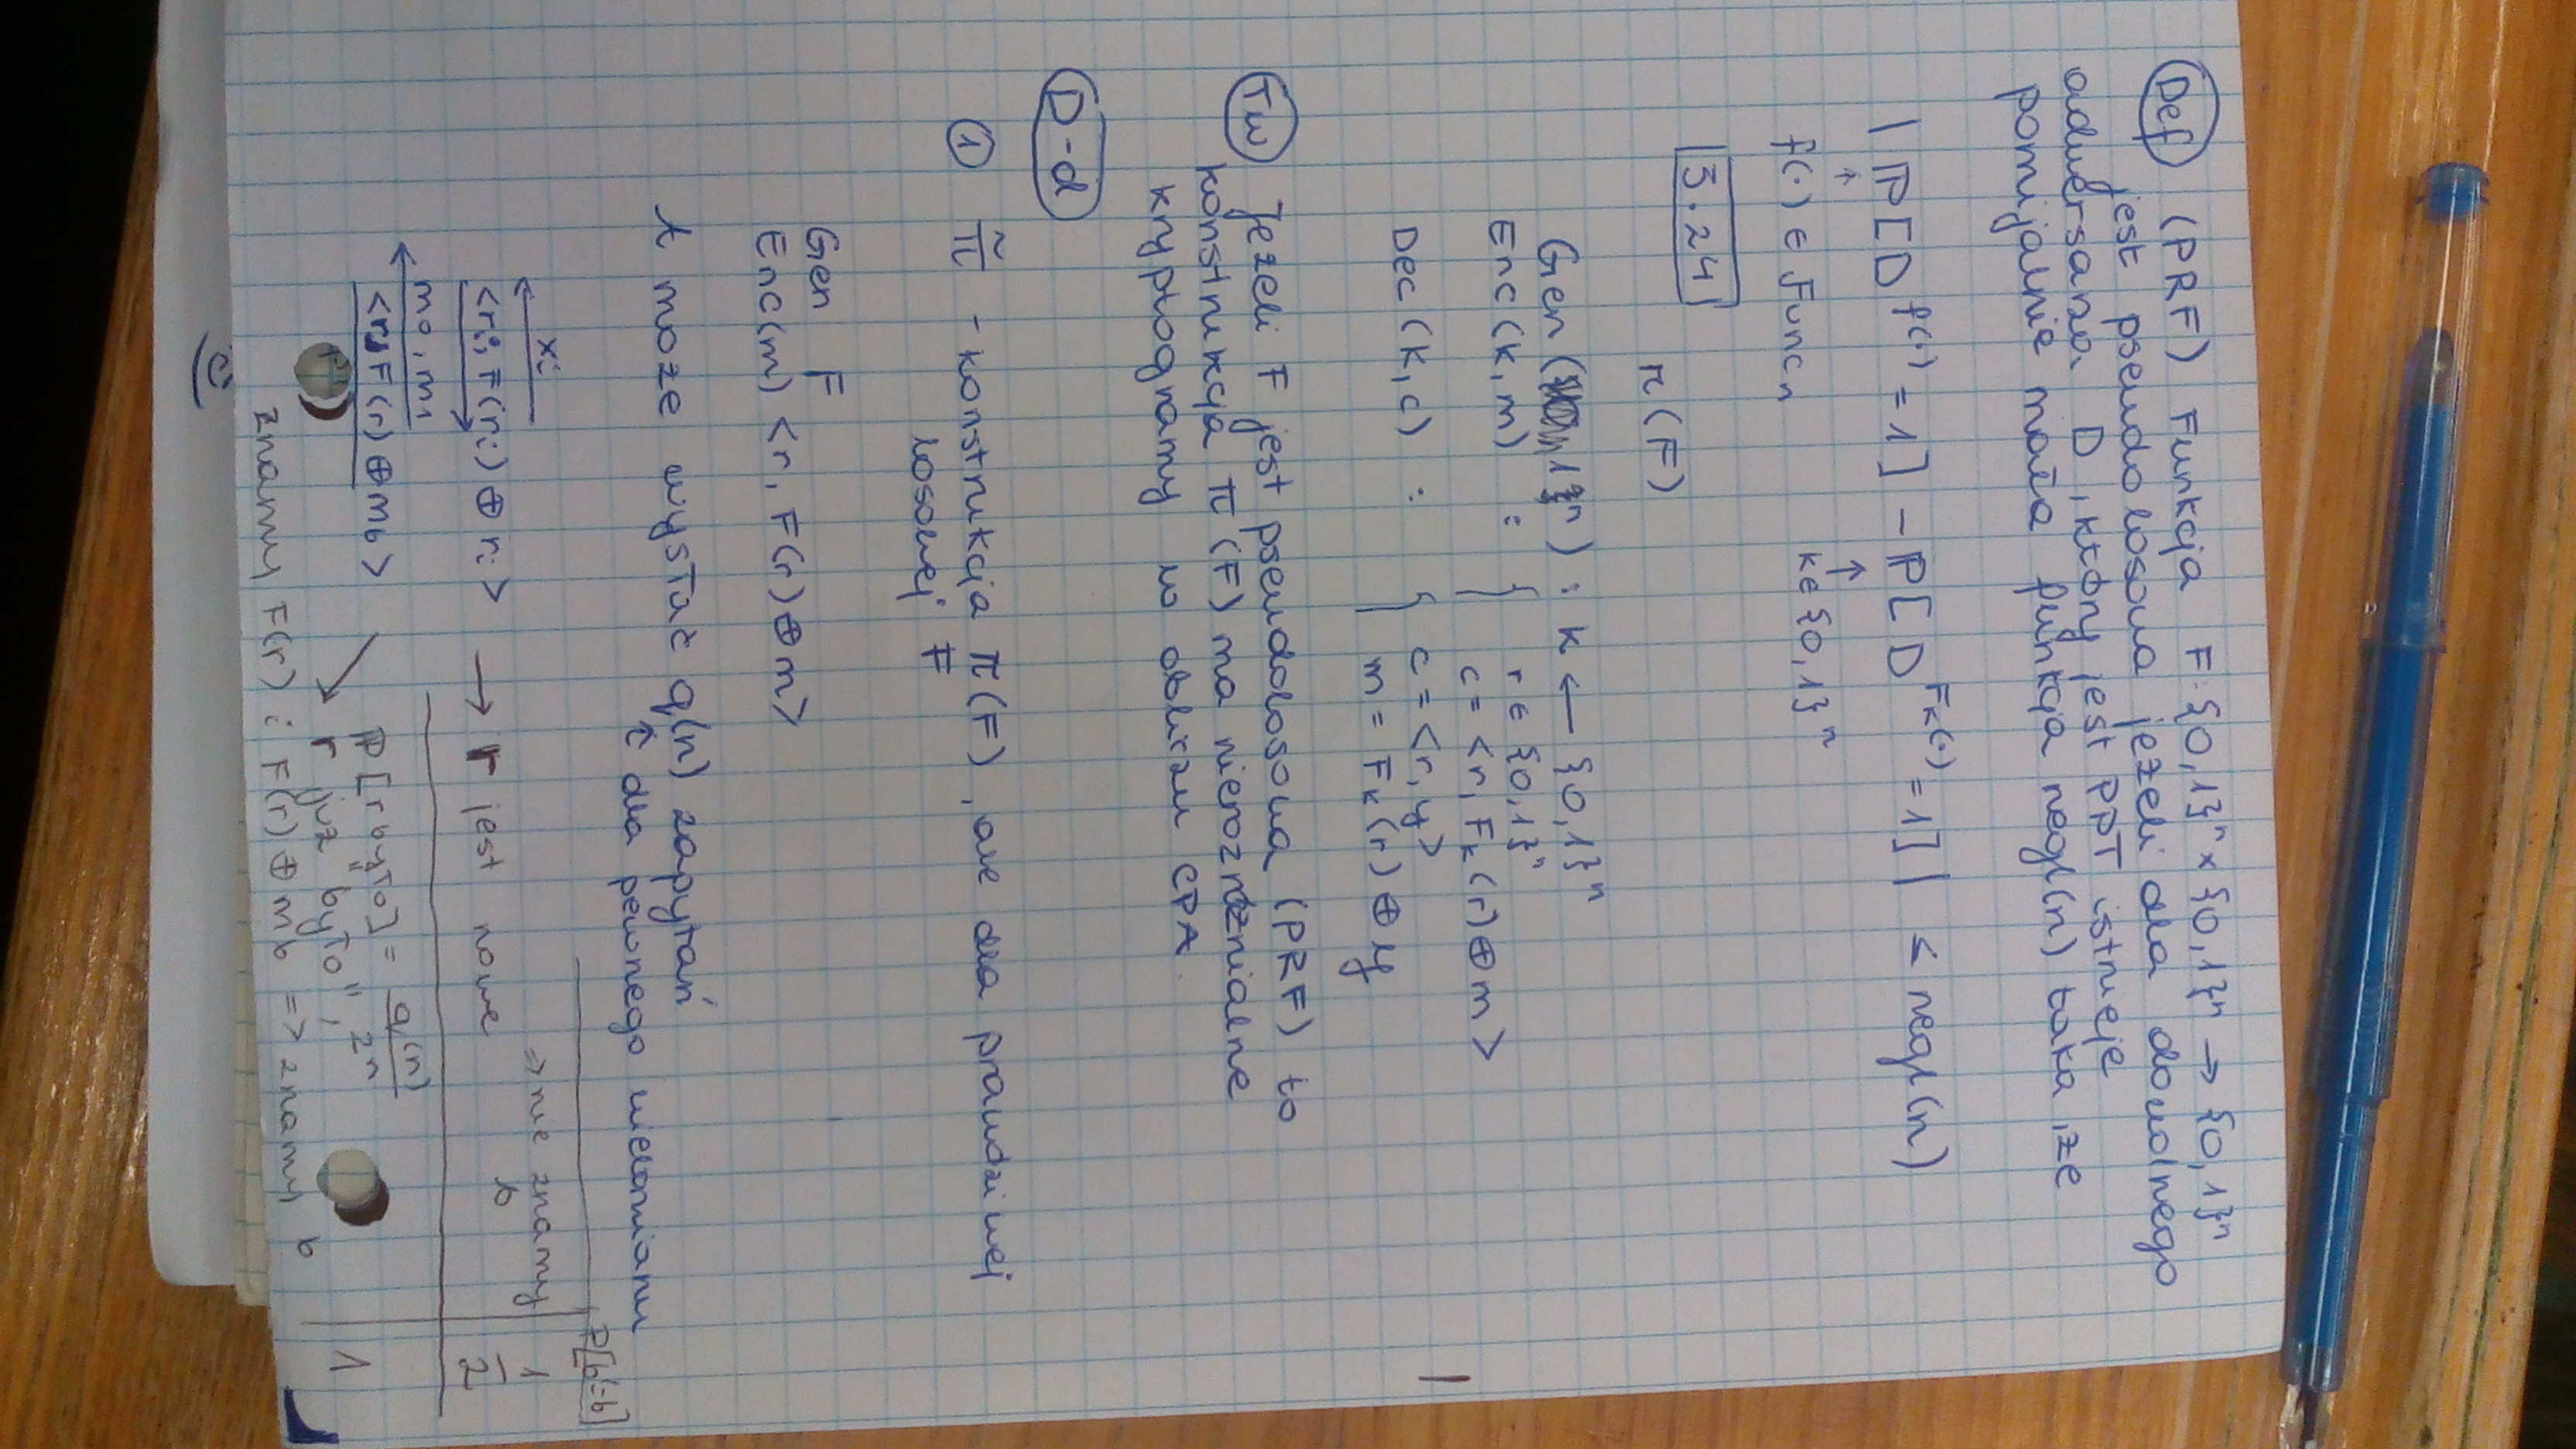 Def (PRF) Funkcja F: {0,1}ⁿ × {0,1}ⁿ → {0,1}ⁿ
jest pseudolosowa jeżeli dla dowolnego
adwersarza D, który jest PPT istnieje
pomijalnie mała funkcja negl(n) taka, że
| ℙ[D^f(·) = 1] - ℙ[D^Fₖ(·) = 1] | ≤ negl(n)
↑ ↑
f(·) ∈ Funcₙ k∈{0,1}ⁿ
3.24
π(F)
Gen(1ⁿ) : k ← {0,1}ⁿ
Enc(k,m) : { r ∈ {0,1}ⁿ
c = <r, Fₖ(r)⊕m>
Dec(k,c) : { c = <r,y>
m = Fₖ(r)⊕y
Tw Jeżeli F jest pseudolosowa (PRF) to
konstrukcja π(F) ma nierozróżnialne
kryptogramy w obliczu CPA.
D-d
① π̃ - konstrukcja π(F), ale dla prawdziwej
losowej F
Gen F
Enc(m) <r, F(r)⊕m>
A może wysłać q(n) zapytań
↑ dla pewnego wielomianu
P[b'=b]
xᵢ
<rᵢ, F(rᵢ)⊕rᵢ> → r jest nowe => nie znamy b 1/2
m₀, m₁
<r, F(r)⊕m_b>
ℙ[r było] = q(n)/2ⁿ
r już "było",
znamy F(r) : F(r)⊕m_b => znamy b 1